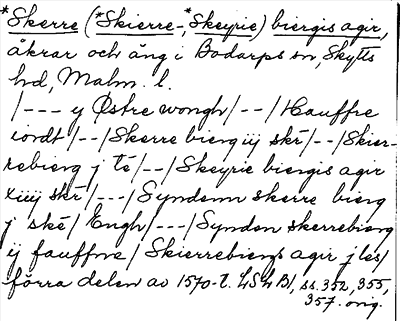 *Skerre (*Skierre-, *Skeyrie) biergis agir,
åkrar och äng i Bodarps sn, Skytts
hd, Malm. l.
/--- y Østre wongh/--/Hauffre
iordt/--/Skerre bierg iij skr/--/Skier-
rebierg j te/--/Skeyrie biergis agir
xiiij skr/---/Synden skerre bierg
j ske/Engh/---/Synden skerrebierg
ij fauffne/Skierrebiergs agir j les/
förra delen av 1570-t. LSLB1, ss. 352, 355,
357. orig.